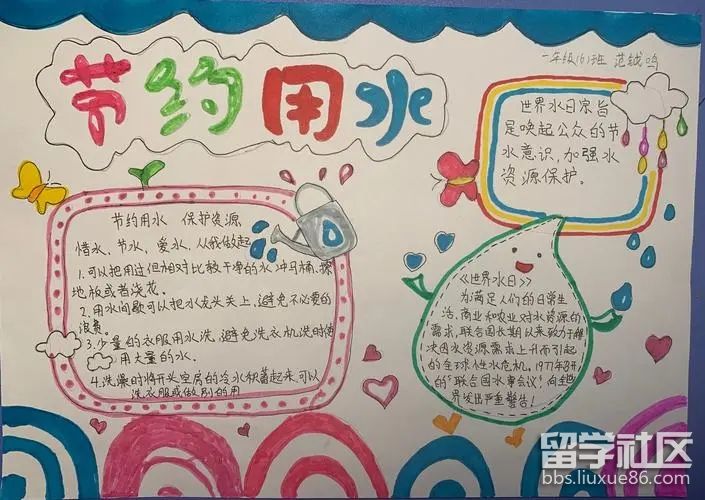 节约用水
一年级(6)班 范钺鸣
世界水日宗旨
是唤起公众的节
水意识,加强水
资源保护。
节约用水 保护资源
惜水、节水、爱水,从我做起
1.可以把用过但相对比较干净的水冲马桶、擦
地板或者浇花。
2.用水间歇可以把水龙头关上,避免不必要的
浪费。
3.少量的衣服用水洗,避免洗衣机洗时使
用大量的水。
4.洗澡时将开头空房的冷水积蓄起来,可以
洗衣服或做别的用
《世界水日》
为满足人们的日常生
活、商业和农业对水资源的
需求,联合国长期以来致力于解
决因水资源需求上升而引起
的全球性水危机。1977年召开
的"联合国水事会议"向全世
界发出严重警告!
留学社区
bbs.liuxue86.com